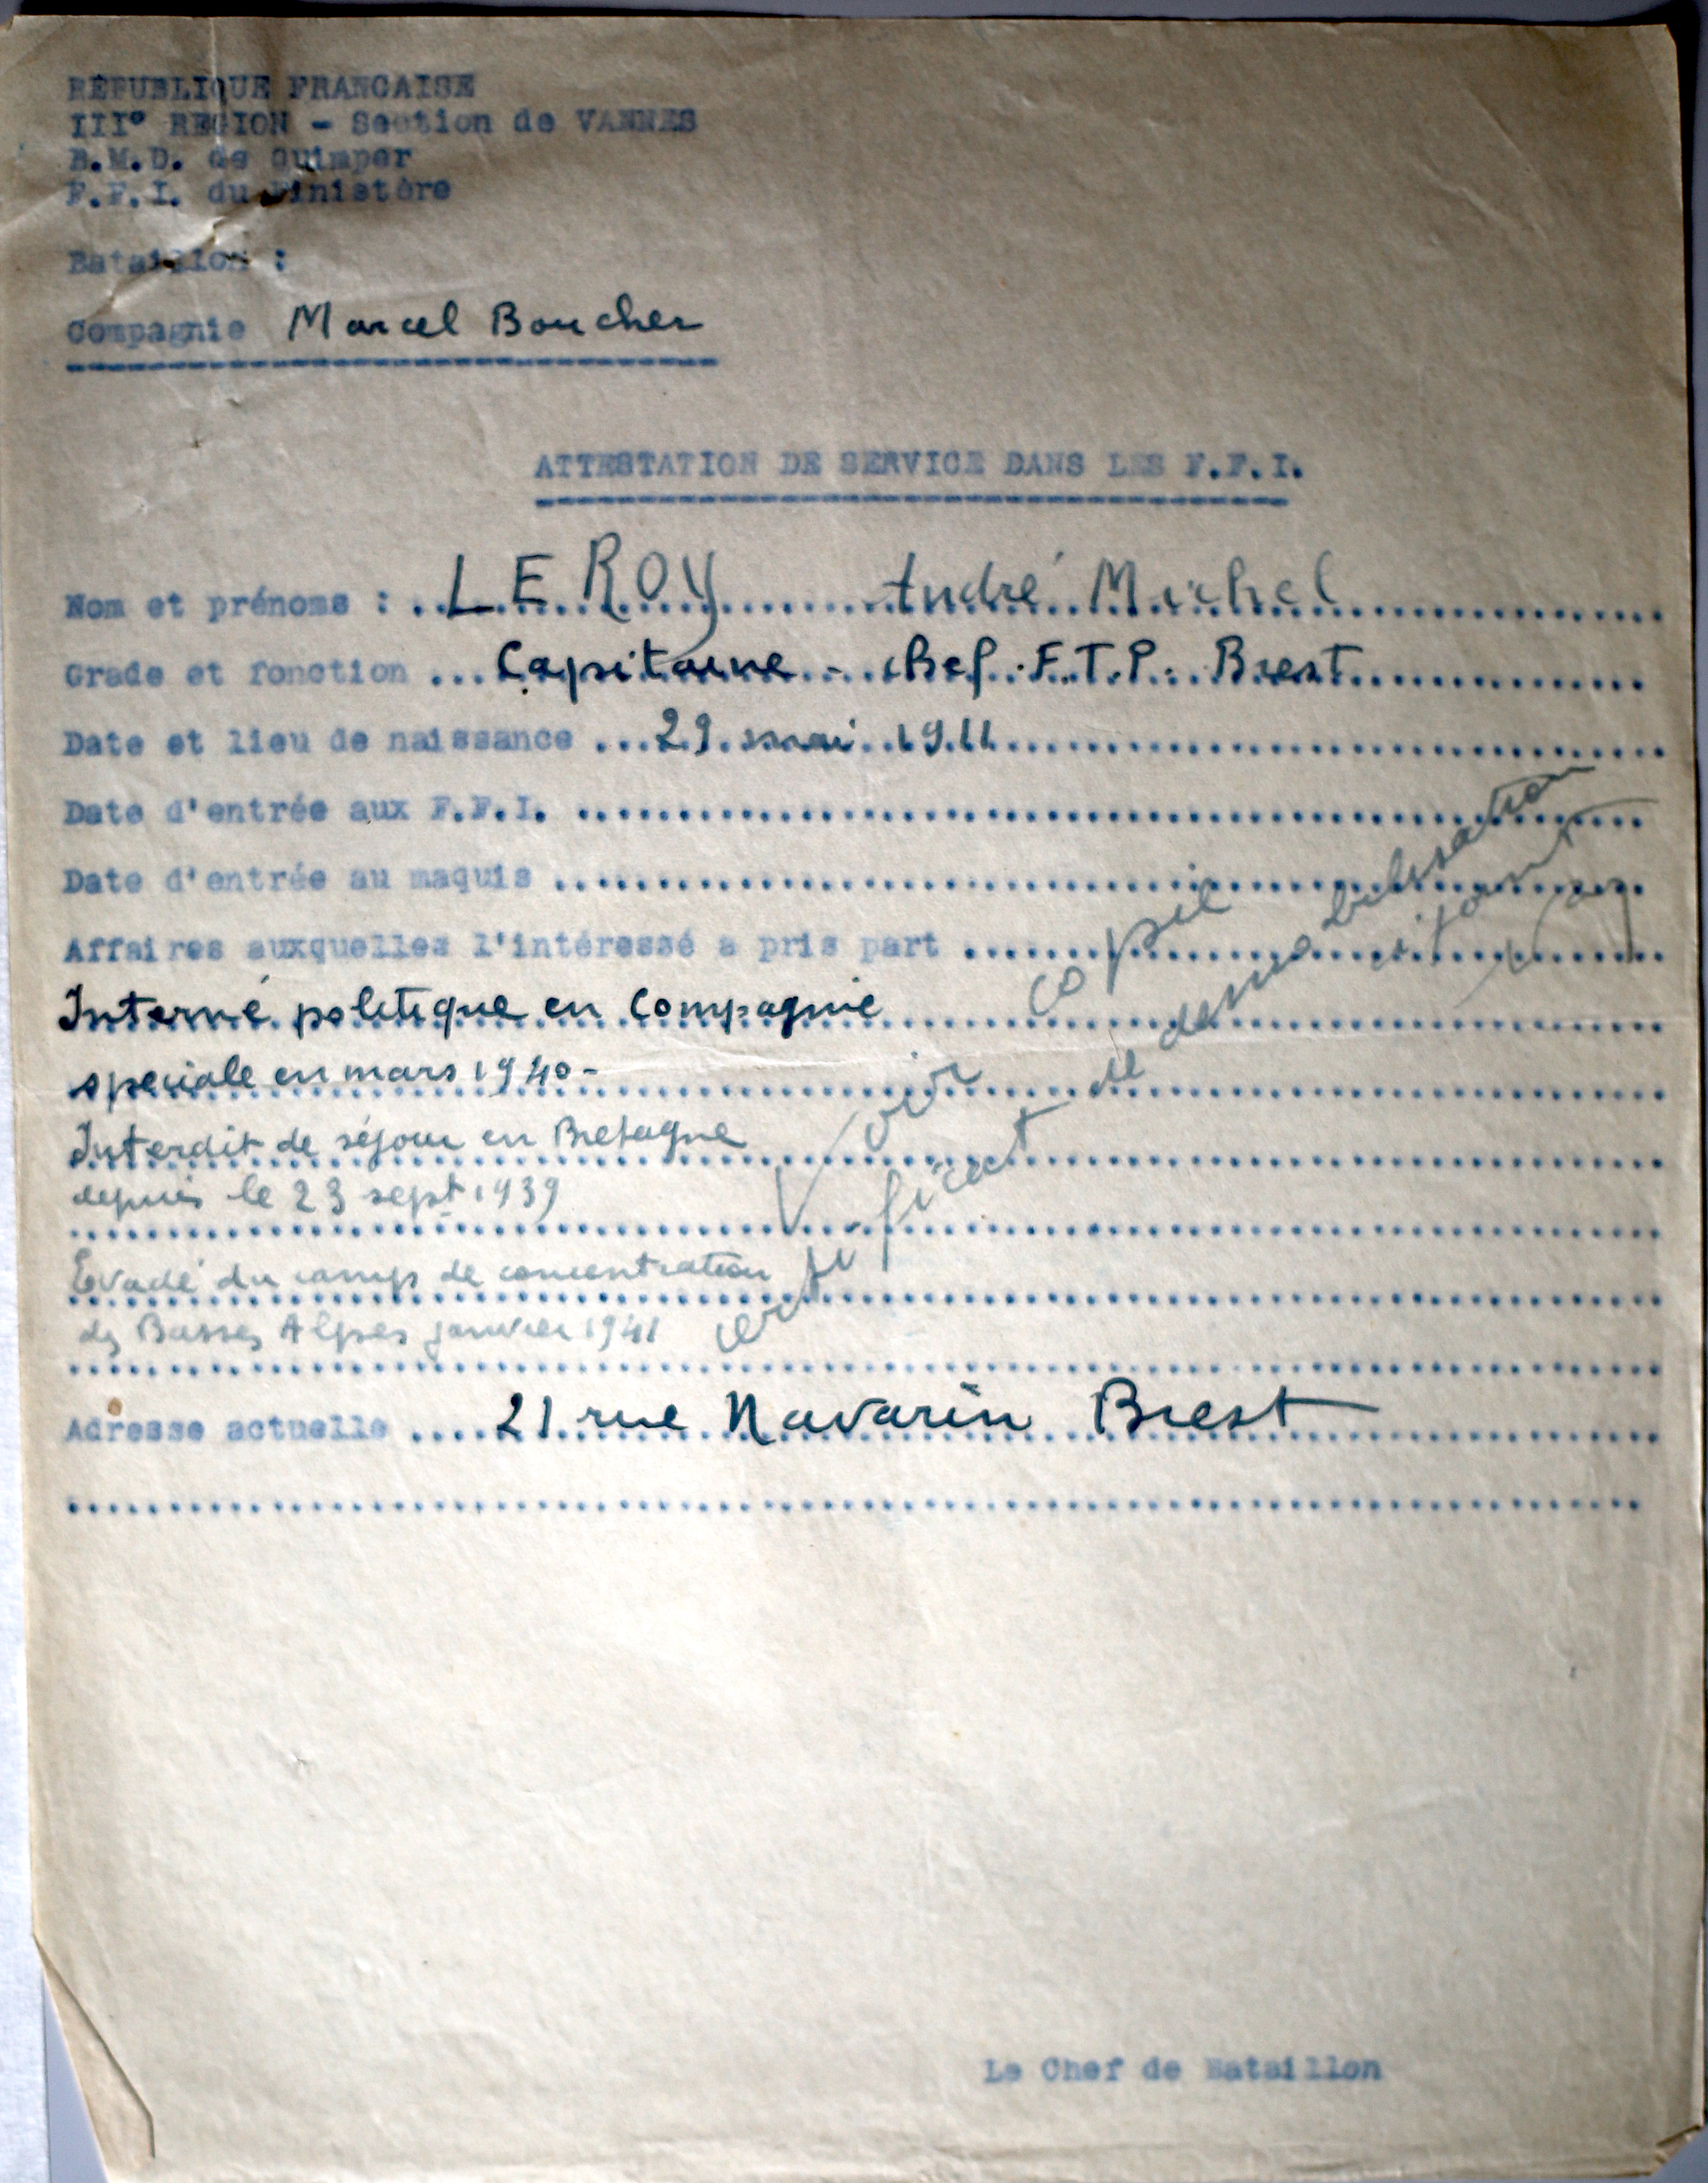 RÉPUBLIQUE FRANCAISE
III° REGION - Section de VANNES
B.M.D. de Quimper
F.F.I. du Finistère
Bataillon :
Compagnie Marcel Boucher
ATTESTATION DE SERVICE DANS LES F.F.I.
Nom et prénoms : LE ROY André Michel
Grade et fonction Capitaine - chef F.T.P. Brest
Date et lieu de naissance 29 mai 1911
Date d'entrée aux F.F.I.
Date d'entrée au maquis
Affaires auxquelles l'intéressé a pris part
Interné politique en Compagnie
speciale en mars 1940-
Interdit de séjour en Bretagne
depuis le 23 sept 1939
Evadé du camp de concentration
des Basses Alpes janvier 1941
Voir copie
certificat de demobilisation
ci joint
Adresse actuelle 21 rue Navarin Brest
Le Chef de Bataillon